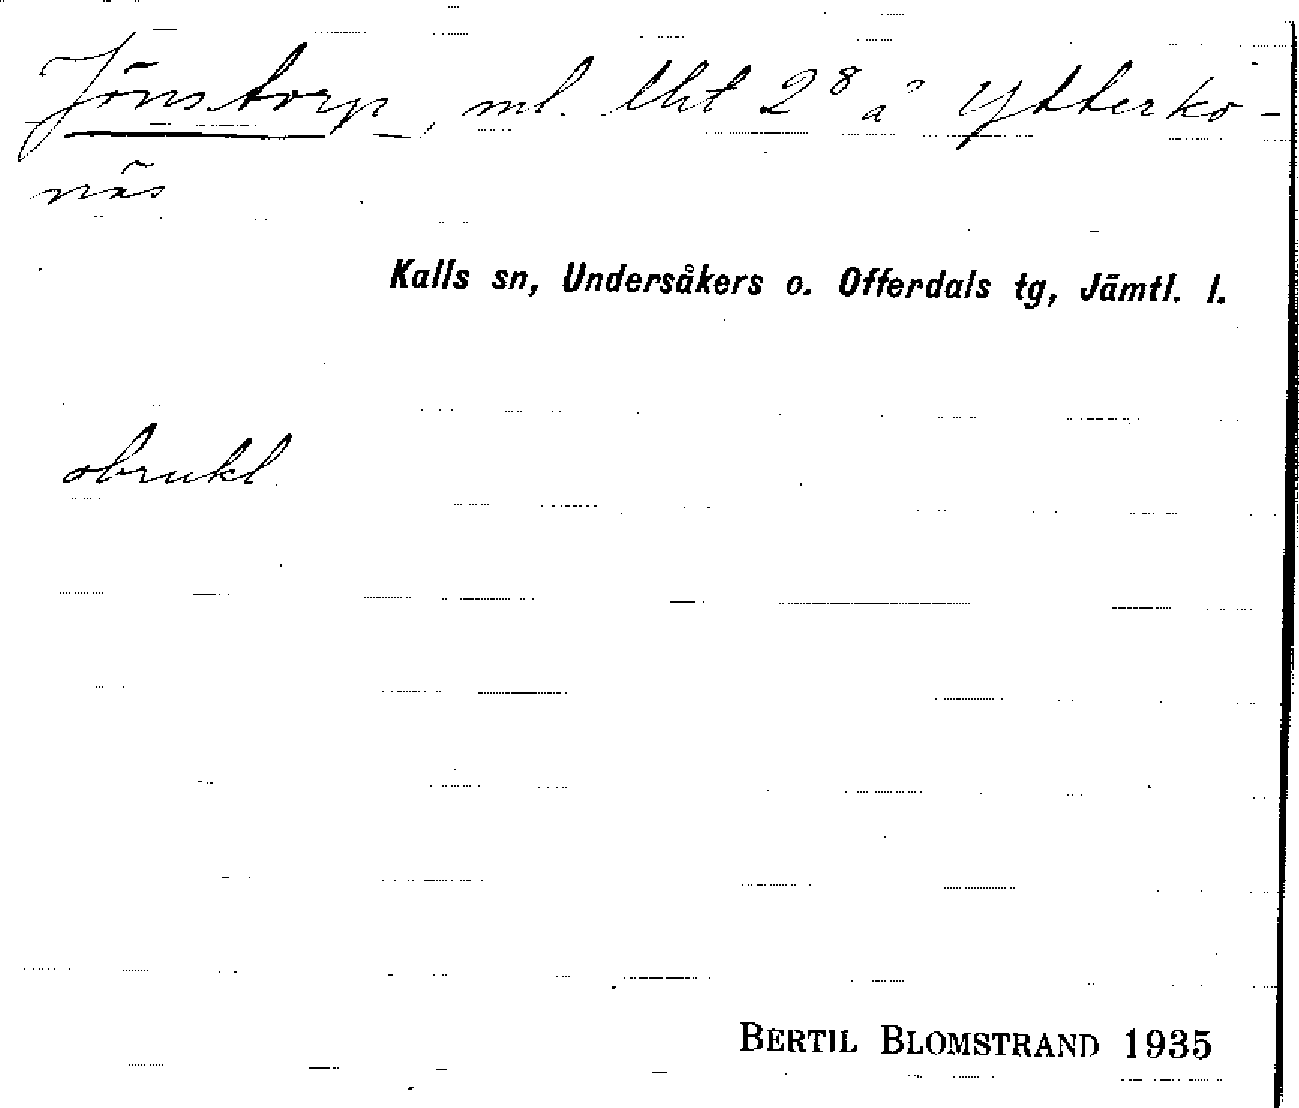 Jönstorp, ml. lht 2⁸ å Ytterko-
näs
Kalls sn, Undersåkers o. Offerdals tg, Jämtl. l.
obrukl.
BERTIL BLOMSTRAND 1935